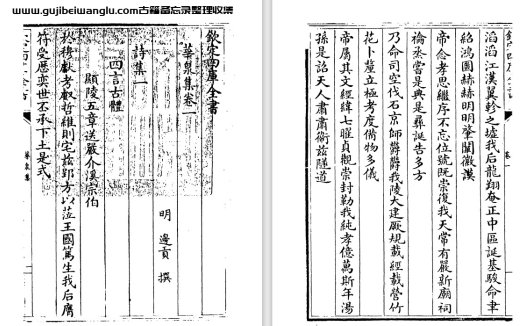 www.gujibeiwanglu.com古籍备忘录整理收集
欽定四庫全書
華泉集卷一
明 邊貢 撰
詩集一
四言古體
顯陵五章送嚴介溪宗伯
於穆獻考叡哲維則定兹郢方以莅王國篤生我后膺
符受歷奕世丕承下土是式
滔滔江漢翼軫之墟我后龍翔奄正中區誕基駿命聿
紹鴻圖赫赫明明肇闡徽謨
帝念孝思繼序不忘位號既崇復我天常有嚴新廟祠
禴烝嘗是典是彝誕告多方
乃命司空伐石京師鬱鬱我陵大建厥規載經載營竹
花卜筮立極考度備物多儀
帝屬其文經緯七曜貞觀崇封勒我純孝億萬斯年湯
孫是詒天人肅肅衛兹隧道